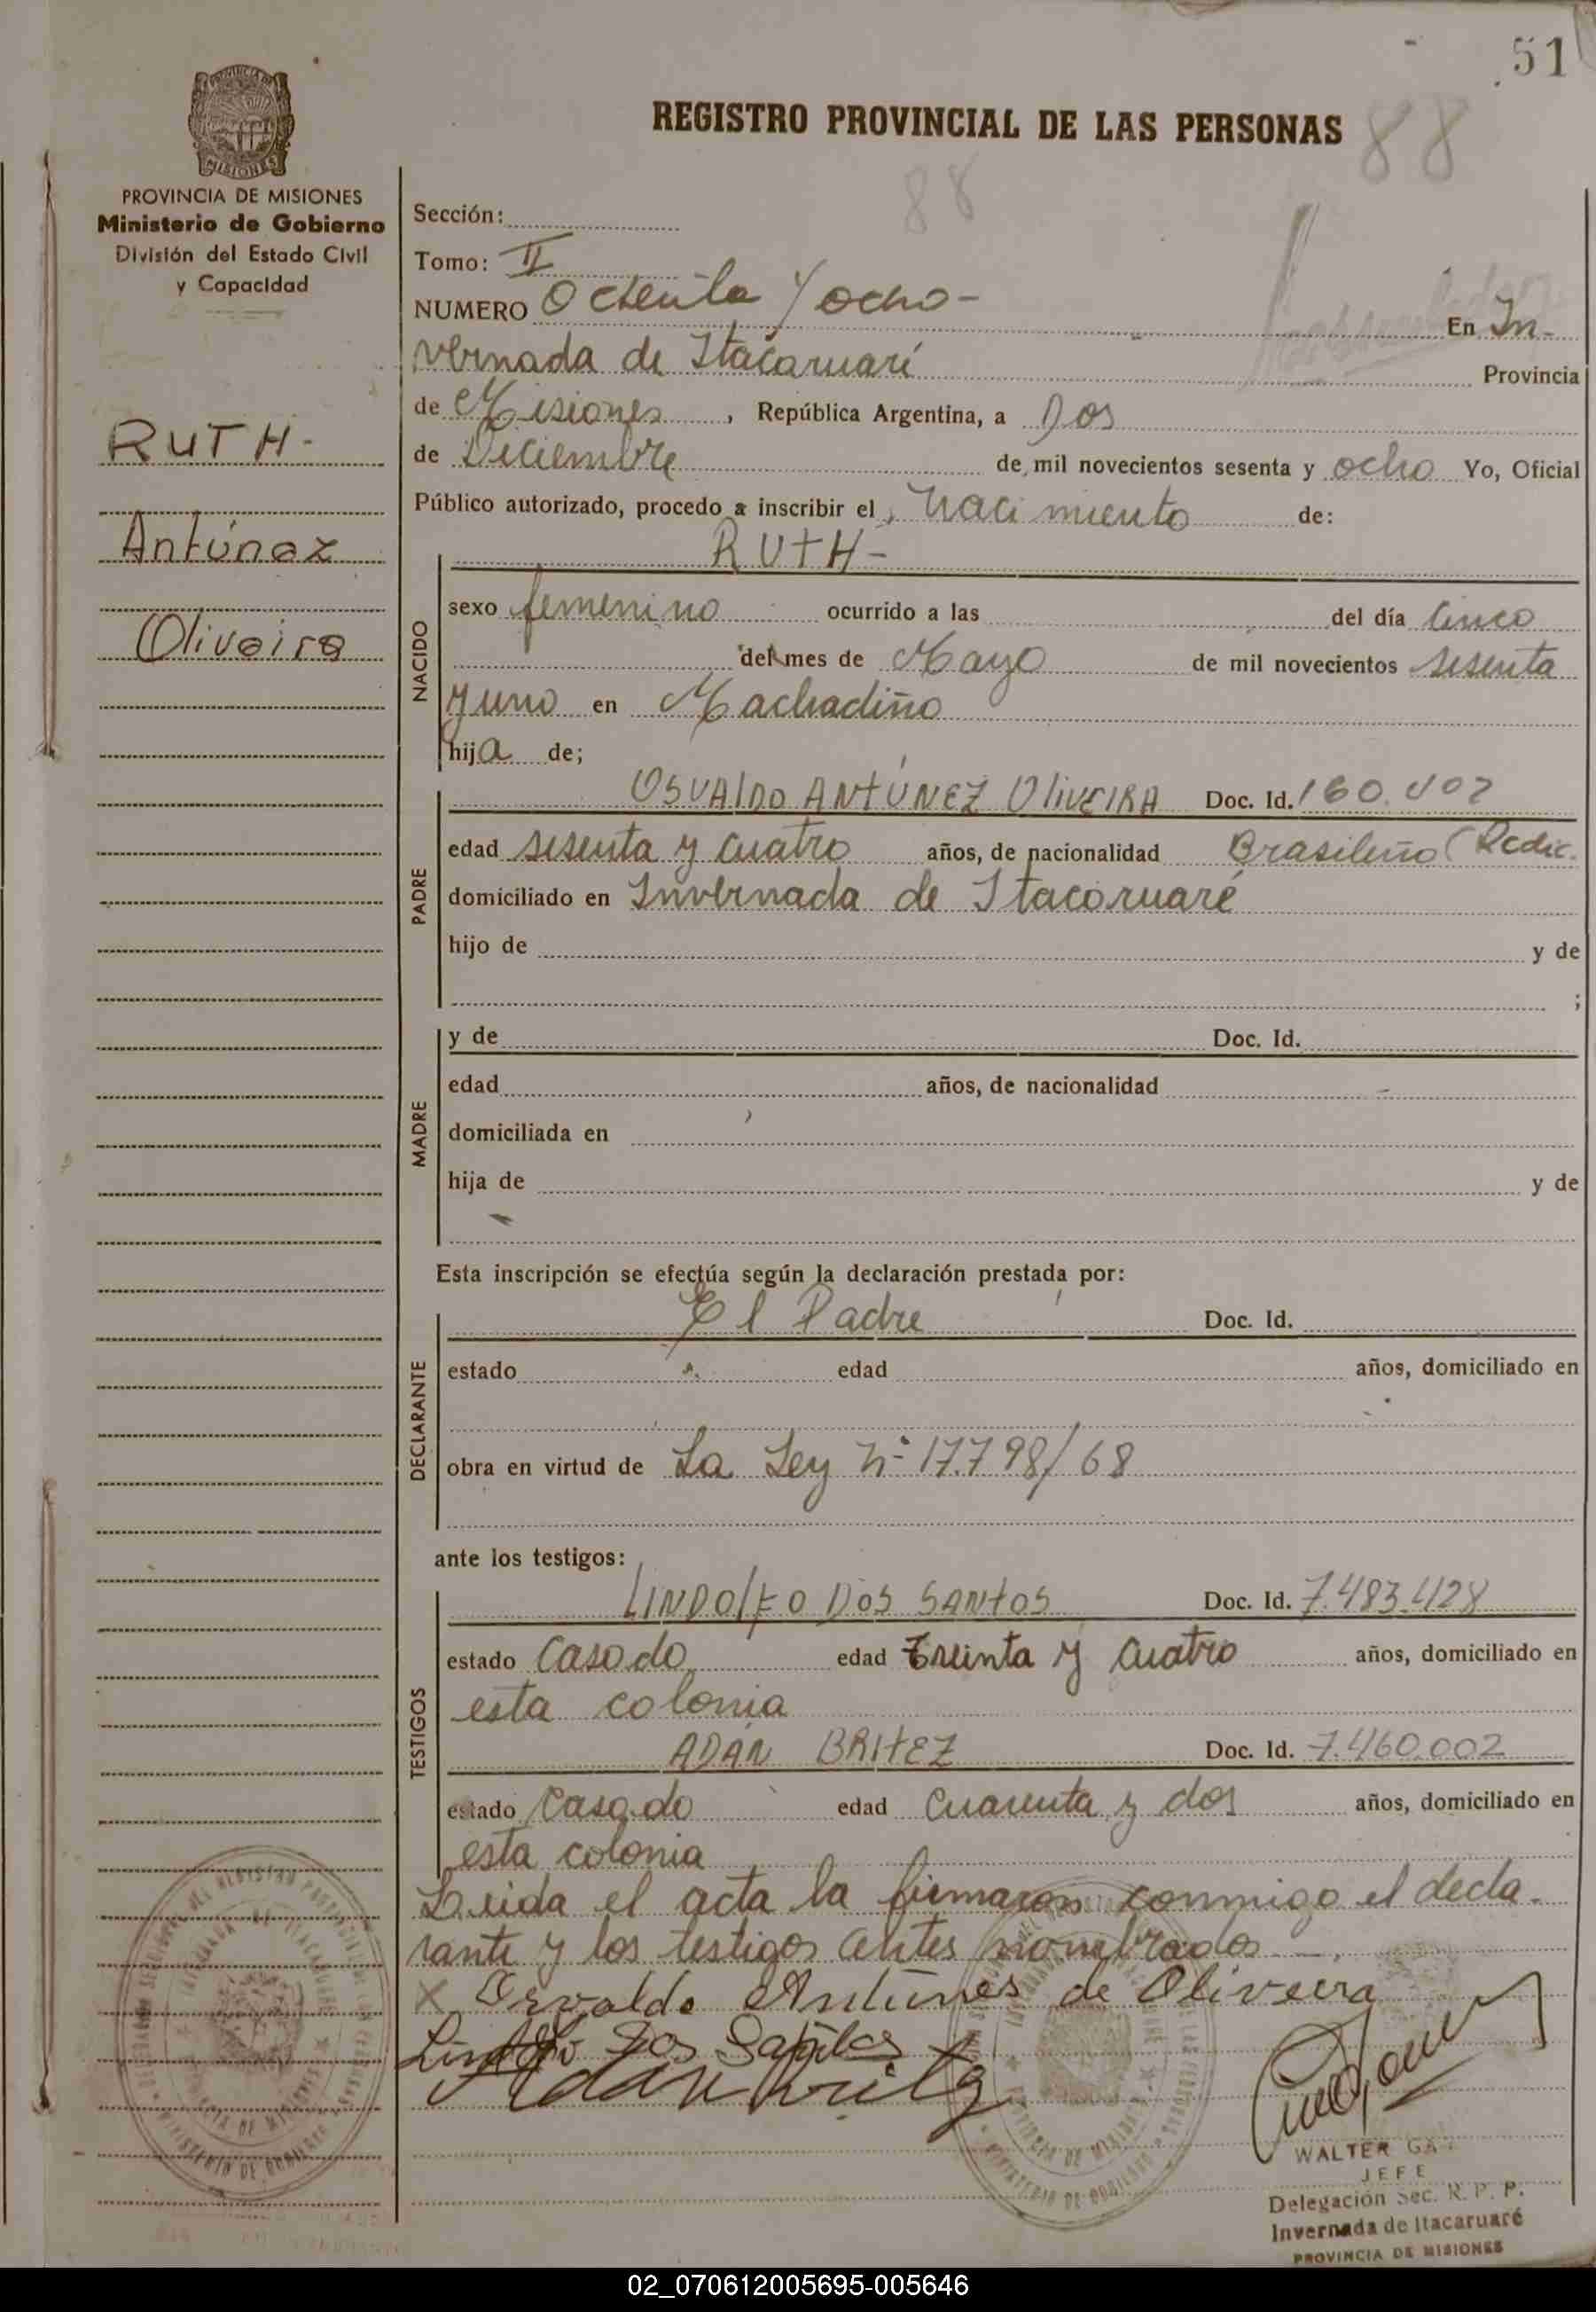 51
REGISTRO PROVINCIAL DE LAS PERSONAS 88
88
PROVINCIA DE MISIONES
MISIONES
PROVINCIA DE MISIONES
Ministerio de Gobierno
División del Estado Civil
y Capacidad
RUTH-
Antúnez
Oliveira
Sección:
Tomo: II
NUMERO Ochenta y ocho - En In-
vernada de Itacaruaré Provincia
de Misiones, República Argentina, a Dos
de Diciembre de mil novecientos sesenta y ocho Yo, Oficial
Público autorizado, procedo a inscribir el nacimiento de:
NACIDO
RUTH-
sexo femenino ocurrido a las del día Cinco
del mes de Mayo de mil novecientos sesenta
y uno en Machadiño
hija de;
PADRE
OSVALDO ANTÚNEZ OLIVEIRA Doc. Id. 160.402
edad sesenta y cuatro años, de nacionalidad Brasileño (Radic.
domiciliado en Invernada de Itacaruaré
hijo de y de
;
MADRE
y de Doc. Id.
edad años, de nacionalidad
domiciliada en
hija de y de
Esta inscripción se efectúa según la declaración prestada por:
DECLARANTE
El Padre Doc. Id.
estado edad años, domiciliado en
obra en virtud de La Ley Nº 17.798/68
ante los testigos:
TESTIGOS
LINDOLFO DOS SANTOS Doc. Id. 7.483.428
estado Casado edad Treinta y cuatro años, domiciliado en
esta colonia
ADÁN BRITEZ Doc. Id. 7.460.002
estado Casado edad Cuarenta y dos años, domiciliado en
esta colonia
Leida el acta la firmaron conmigo el decla-
rante y los testigos antes nombrados -.
X Osvaldo Antunes de Oliveira
Lindolfo Dos Santos
Adan Britez
WALTER
JEFE
Delegación Sec. R. P. P.
Invernada de Itacaruaré
PROVINCIA DE MISIONES
02_070612005695-005646